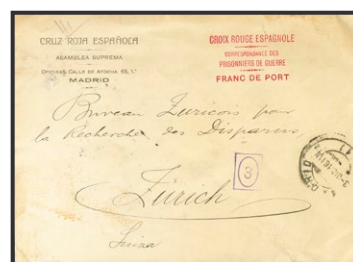 CRUZ ROJA ESPAÑOLA
ASAMBLEA SUPREMA
OFICINAS, CALLE DE ATOCHA, 65, 1.º
MADRID
CROIX ROUGE ESPAGNOLE
CORRESPONDANCE DES
PRISONNIERS DE GUERRE
FRANC DE PORT
Bureau Zuricois pour
la Recherche des Disparus
3
Zürich
Suiza